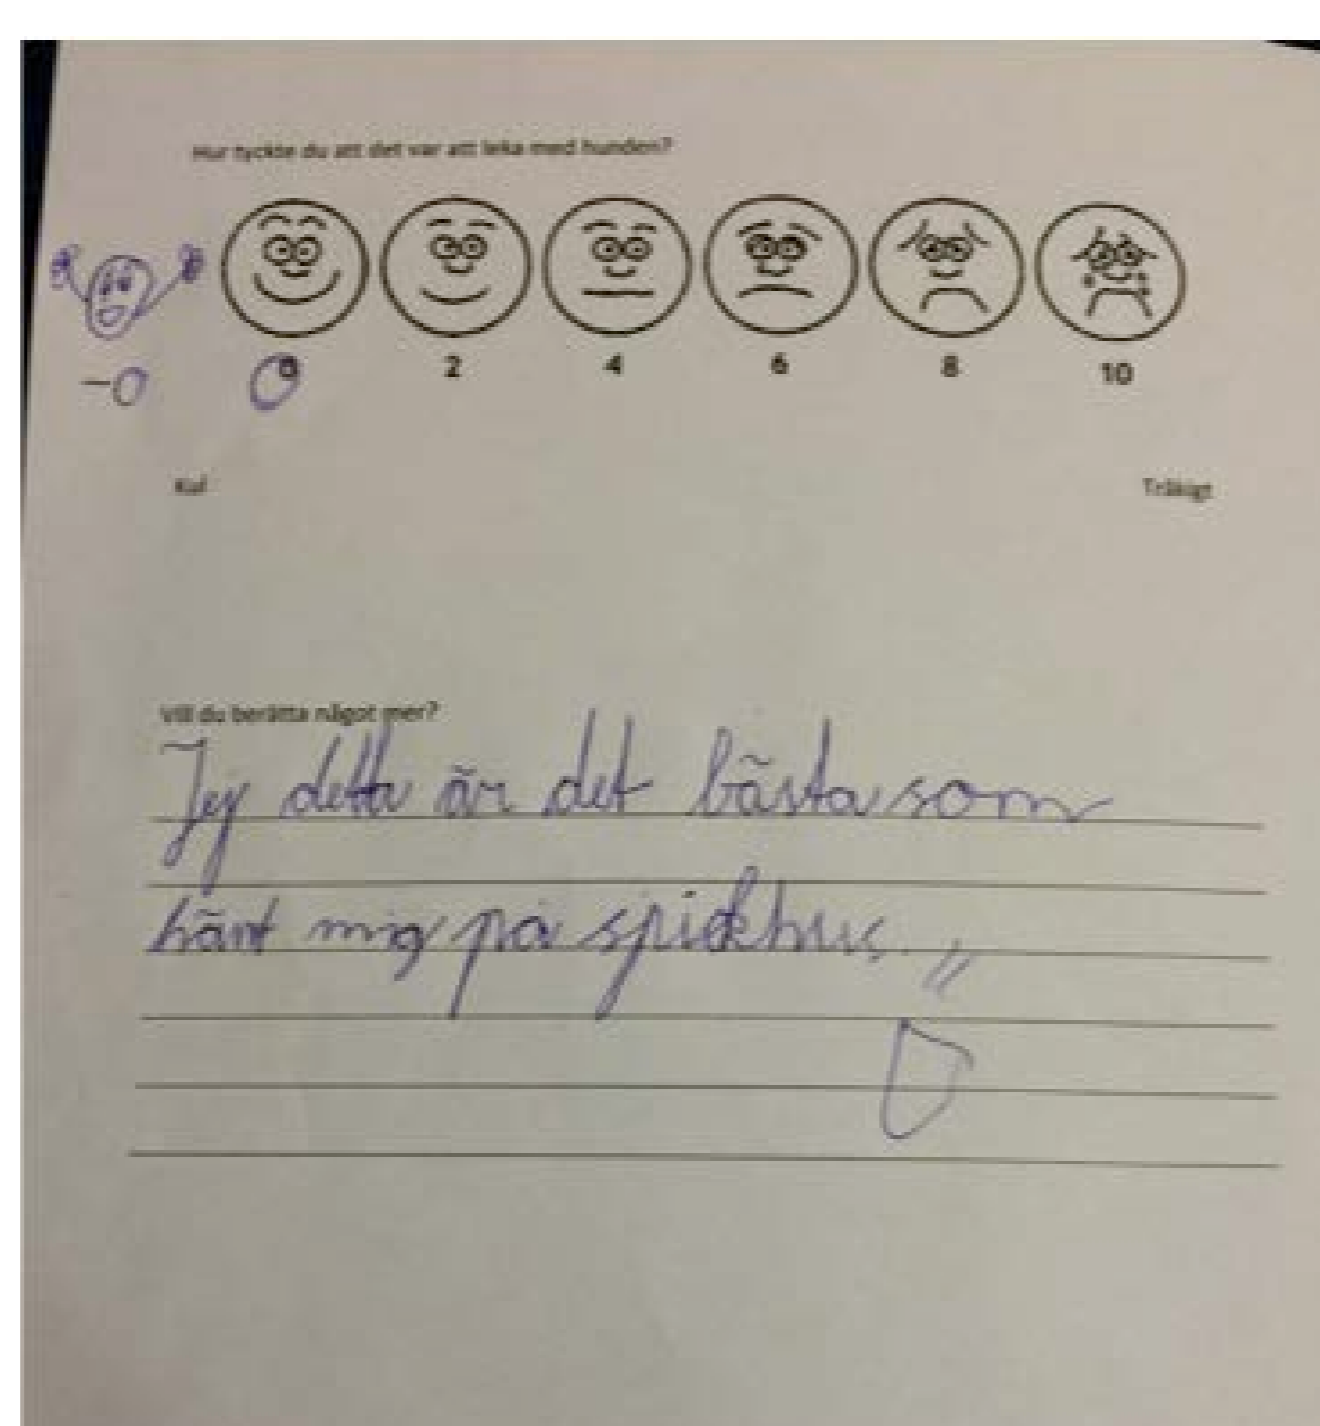 Hur tyckte du att det var att leka med hunden?
0 2 4 6 8 10
-0
Kul Tråkigt
Vill du berätta något mer?
Jej detta är det bästa som
hänt mig på